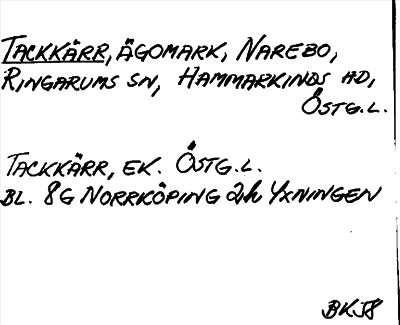 TACKKÄRR, ÄGOMARK, NAREBO,
RINGARUMS SN, HAMMARKINDS HD,
ÖSTG.L.
TACKKÄRR, EK. ÖSTG.L.
BL. 8G NORRKÖPING 2h YXNINGEN
BKJ8